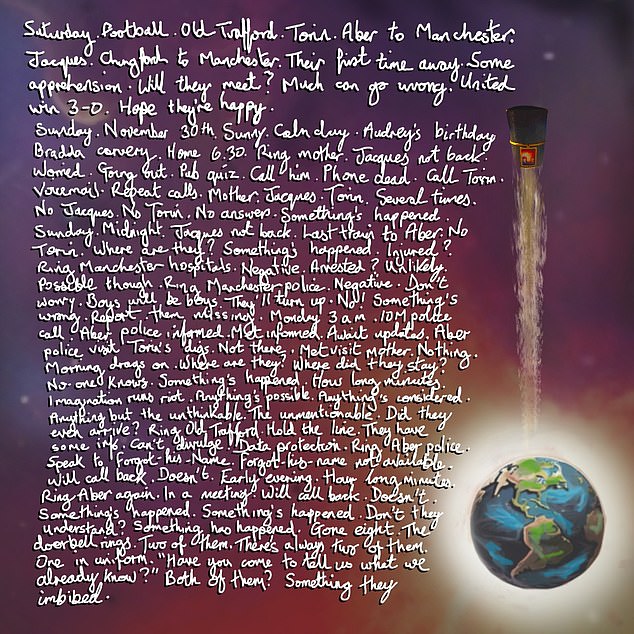 Saturday. Football. Old Trafford. Torin. Aber to Manchester.
Jacques. Chingford to Manchester. Their first time away. Some
apprehension. Will they meet? Much can go wrong. United
win 3-0. Hope they're happy.
Sunday. November 30th. Sunny. Calm day. Audrey's birthday
Bradda carvery. Home 6.30. Ring mother. Jacques not back.
Worried. Going out. Pub quiz. Call him. Phone dead. Call Torin.
Voicemail. Repeat calls. Mother. Jacques. Torin. Several times.
No Jacques. No Torin. No answer. Something's happened.
Sunday. Midnight. Jacques not back. Last train to Aber. No
Torin. Where are they? Something's happened. Injured?
Ring Manchester hospitals. Negative. Arrested? Unlikely.
Possible though. Ring Manchester police. Negative. Don't
worry. Boys will be boys. They'll turn up. No! Something's
wrong. Report them missing. Monday 3am. IOM police
call Aber police. informed. Met informed. Await updates. Aber
police visit Torin's digs. Not there. Met visit mother. Nothing.
Morning drags on. Where are they? Where did they stay?
No-one knows. Something's happened. Hours long minutes.
Imagination runs riot. Anything's possible. Anything's considered.
Anything but the unthinkable. The unmentionable. Did they
even arrive? Ring Old Trafford. Hold the line. They have
some info. Can't divulge. Data protection. Ring Aber police.
Speak to Forgot-his-Name. Forgot-his-name not available.
Will call back. Doesn't. Early evening. Hour long minutes.
Ring Aber again. In a meeting. Will call back. Doesn't.
Something's happened. Something's happened. Don't they
understand? Something has happened. Gone eight. The
doorbell rings. Two of them. There's always two of them.
One in uniform. "Have you come to tell us what we
already know?" Both of them? Something they
imbibed.